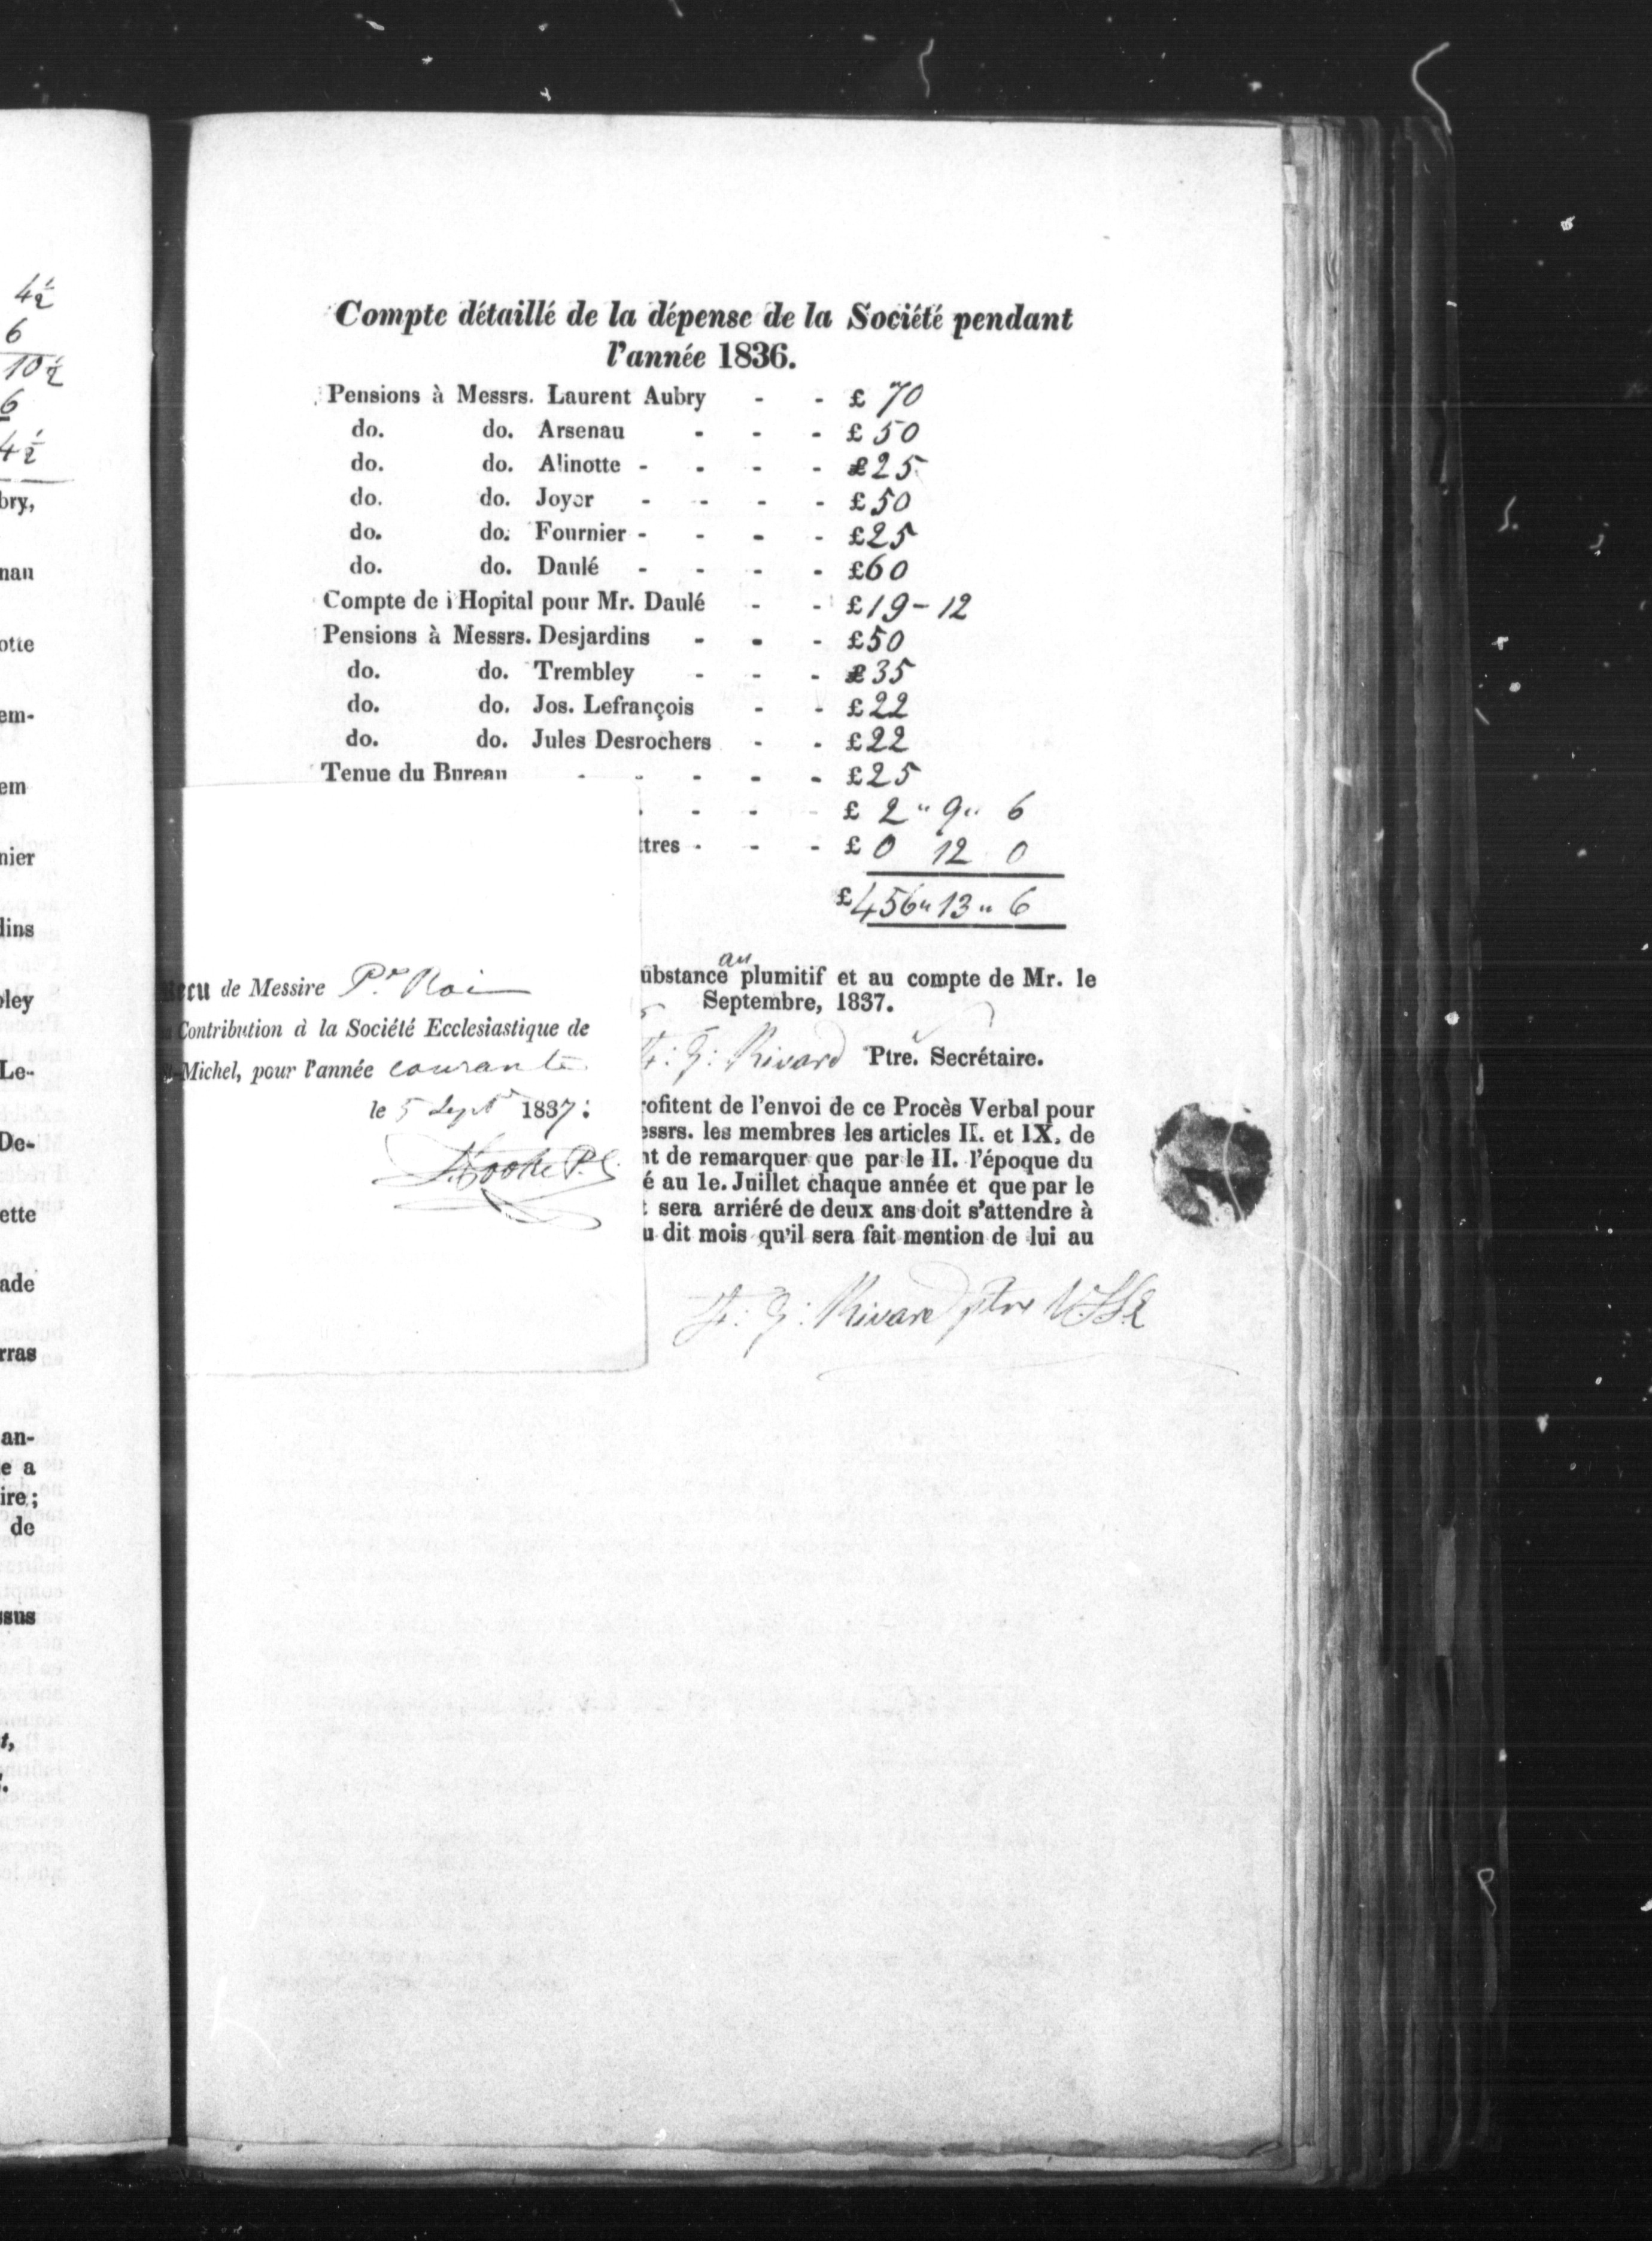 4½
6
10½
6
4½
bry,
nau
otte
em-
em
nier
dins
bley
Le-
De-
ette
ade
rras
an-
e a
ire;
de
ssus
t,
Compte détaillé de la dépense de la Société pendant
l'année 1836.
Pensions à Messrs. Laurent Aubry - - £ 70
do. do. Arsenau - - - £ 50
do. do. Alinotte - - - - £25
do. do. Joyer - - - - £50
do. do. Fournier - - - - £25
do. do. Daulé - - - - £60
Compte de l Hopital pour Mr. Daulé - - £19-12
Pensions à Messrs. Desjardins - - - £50
do. do. Trembley - - - £35
do. do. Jos. Lefrançois - - £22
do. do. Jules Desrochers - - £22
Tenue du Bureau - - - - - £25
- - - - £ 2 " 9 " 6
ttres - - - £ 0 12 0
£456 " 13 " 6
ubstance au plumitif et au compte de Mr. le
Septembre, 1837.
F: G: Rivard Ptre. Secrétaire.
rofitent de l'envoi de ce Procès Verbal pour
essrs. les membres les articles II. et IX, de
nt de remarquer que par le II. l'époque du
é au 1e. Juillet chaque année et que par le
t sera arriéré de deux ans doit s'attendre à
u dit mois qu'il sera fait mention de lui au
F: G: Rivard ptre
Recu de Messire Pre Roi
a Contribution à la Société Ecclesiastique de
St-Michel, pour l'année courante
le 5 Sept 1837:
T. Cooke P.